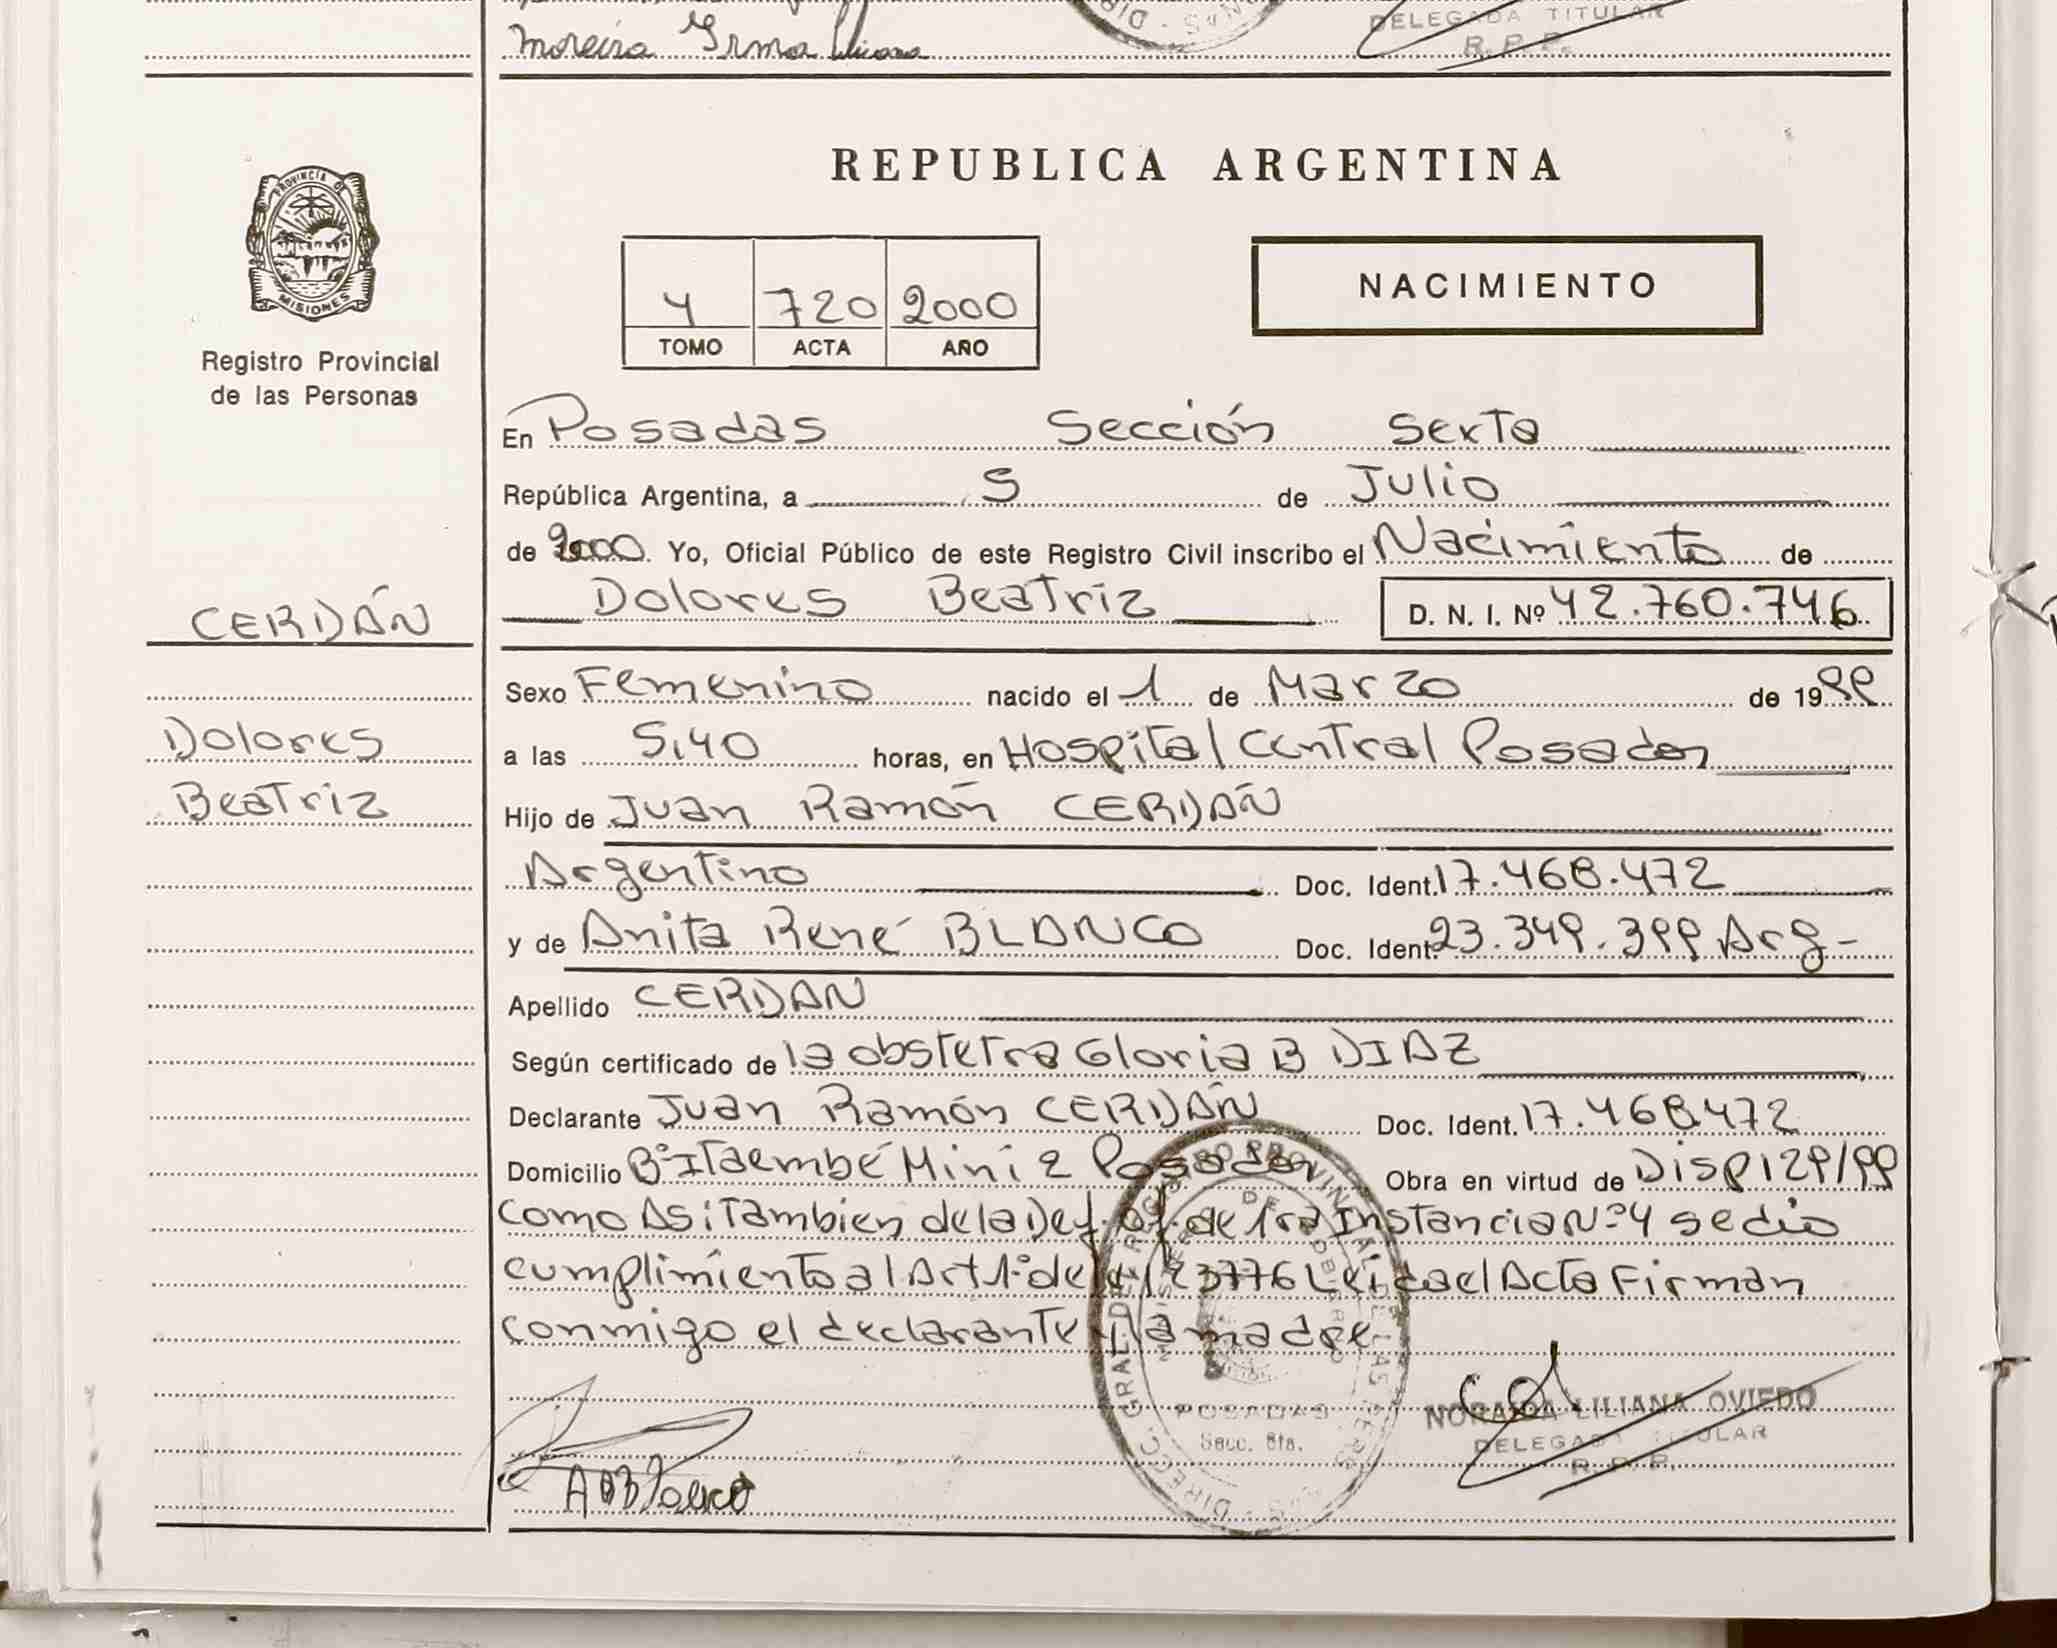 Moreira Irma
DELEGADA TITULAR
R. P. P.
PROVINCIA DE
MISIONES
Registro Provincial
de las Personas
REPUBLICA ARGENTINA
4 720 2000
TOMO ACTA AÑO
NACIMIENTO
En Posadas Sección Sexta
República Argentina, a 5 de Julio
de 2000. Yo, Oficial Público de este Registro Civil inscribo el Nacimiento de
CERDÁN
Dolores Beatriz D. N. I. Nº 42.760.746
Sexo Femenino nacido el 1 de Marzo de 1999
Dolores
a las 5,40 horas, en Hospital Central Posadas
Beatriz
Hijo de Juan Ramón CERDÁN
Argentino Doc. Ident. 17.468.472
y de Anita René BLANCO Doc. Ident. 23.349.399 Arg-
Apellido CERDAN
Según certificado de la obstetra Gloria B DIAZ
Declarante Juan Ramón CERDÁN Doc. Ident. 17.468472
Domicilio Bº Itaembé Mini 2 Posadas Obra en virtud de Disp 129/99
como Asi Tambien de la Def. Of. de 1ra Instancia Nº 4 se dio
cumplimiento al Art 1º de la 23776 Leida el Acta Firman
conmigo el declarante y la madre
DIRECC. GRAL. DE REGISTRO PROVINCIAL DE LAS PERSONAS
MINISTERIO DE GOBIERNO
POSADAS
Secc. 6ta.
NORAIDA LILIANA OVIEDO
DELEGADA TITULAR
R. P. P.
A R Blanco